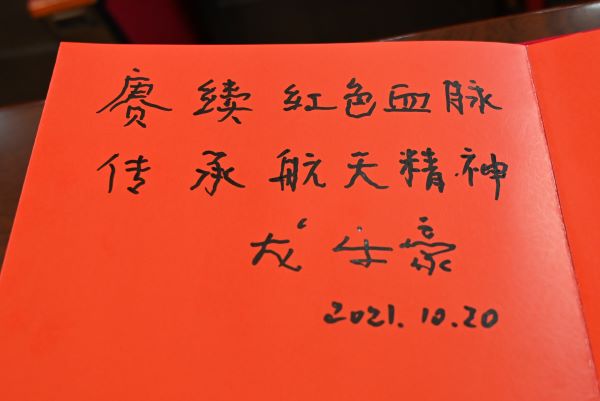 赓续红色血脉
传承航天精神
龙乐豪
2021.10.20